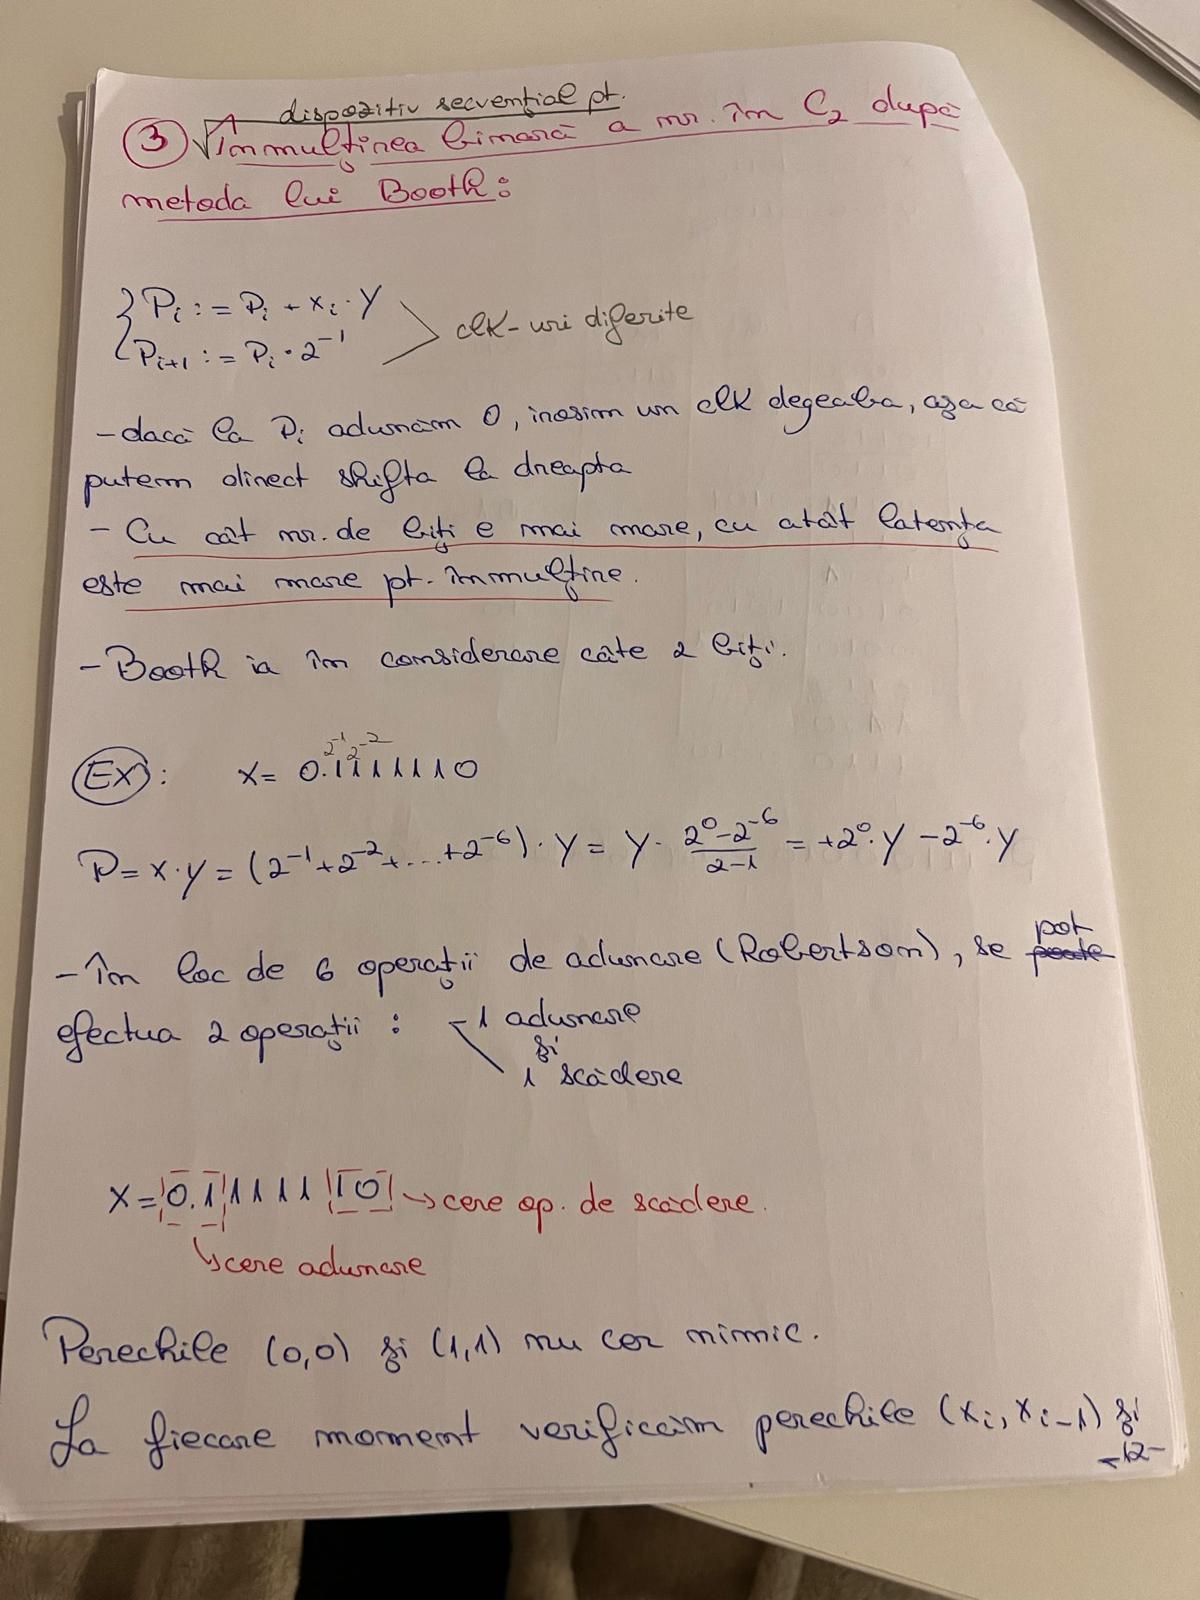 dispozitiv secvențial pt.
3 Înmulțirea binară a nr. în C2 după
metoda lui Booth:
Pi := Pi + xi · Y
Pi+1 := Pi · 2^-1
clk-uri diferite
- dacă la Pi adunăm 0, irosim un clk degeaba, așa că
putem direct shifta la dreapta
- Cu cât nr. de biți e mai mare, cu atât latența
este mai mare pt. înmulțire.
- Booth ia în considerare câte 2 biți.
2^-1 2^-2
EX: X = 0.1111110
P = X·Y = (2^-1 + 2^-2 + ... + 2^-6) · Y = Y · (2^0 - 2^-6)/(2-1) = +2^0·Y - 2^-6·Y
- În loc de 6 operații de adunare (Robertson), se poate pot
efectua 2 operații: - 1 adunare
și
1 scădere
X = 0.1 1 1 1 1 1 0 → cere op. de scădere.
↳ cere adunare
Perechile (0,0) și (1,1) nu cer nimic.
La fiecare moment verificăm perechile (xi, xi-1) și
-12-